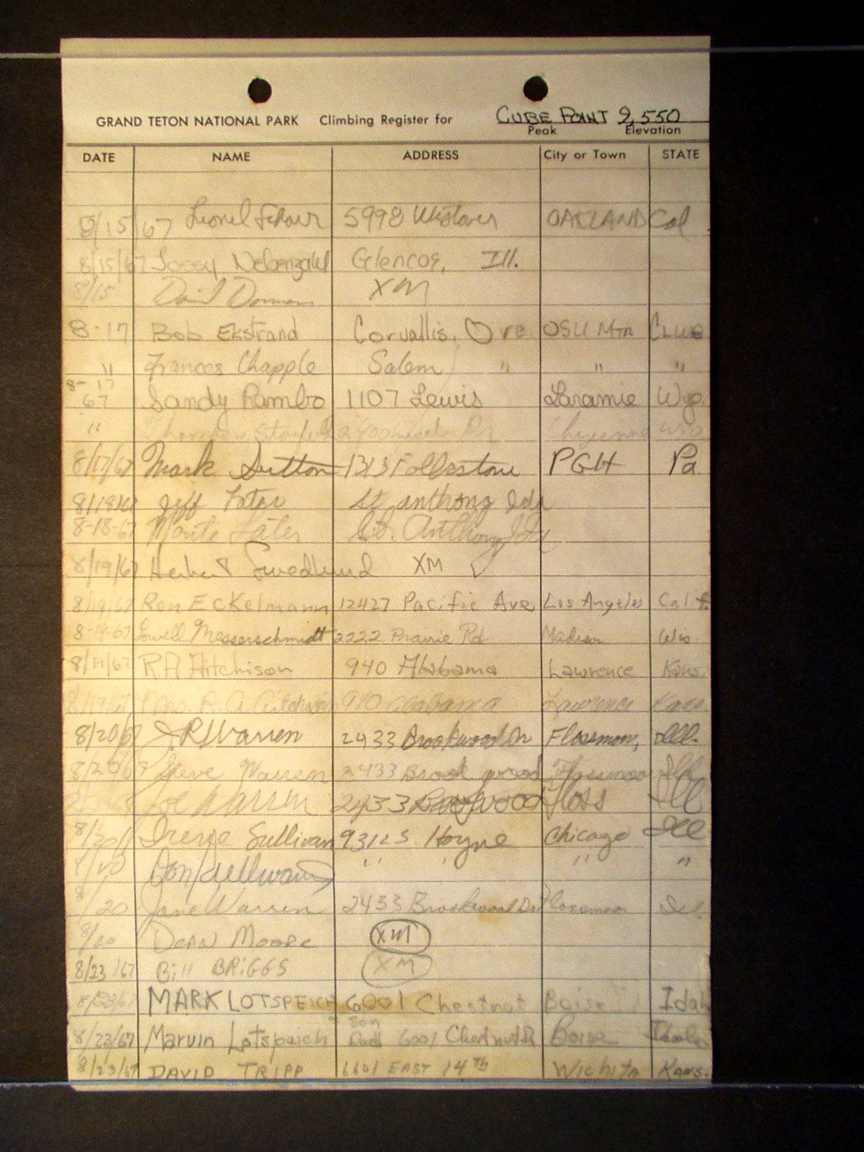 GRAND TETON NATIONAL PARK Climbing Register for CUBE POINT 9,550
Peak Elevation
DATE NAME ADDRESS City or Town STATE
8/15/67 Lionel 5998 OAKLAND Cal
8/15/67 Glencoe, Ill.
8/15 David XM
8-17 Bob Ekstrand Corvallis, Ore OSU Mtn Club
" Frances Chapple Salem " " "
8-17 67 Sandy Rambo 1107 Lewis Laramie Wyo.
" Cheyenne Wyo
8/17/67 Mark Sutton 1313 PGH Pa
8/19/67 Jeff St. anthony Ida
8-18-67 Monte St. Anthony Ida
8/19/67 Herbert Swedlund XM
8/19/67 Ron Eckelmann 12427 Pacific Ave Los Angeles Calif.
8-19-67 Lowell Messerschmidt 2222 Prairie Rd Madison Wis.
8/19/67 R.A. Aitchison 940 Alabama Lawrence Kans.
8/19/67 Mrs. R. A. Aitchison 940 Alabama Lawrence Kans.
8/20/67 J.R. Warren 2433 Brookwood Dr Flossmoor, Ill.
8/20/67 Steve Warren 2433 Brookwood Flossmoor Ill
Joe Warren 2433 Brookwood Floss Ill
8/20/ Irene Sullivan 9312 S. Hoyne Chicago Ill
8/20 Don Sullivan " " " "
8/20 Jane Warren 2433 Brookwood Dr Flossmoor Ill.
8/20 Dean Moore XM
8/23/67 Bill BRIGGS XM
8/23/67 MARK LOTSPEICH 6001 Chestnut Boise Idah
8/23/67 Marvin Lotspeich Dad & son 6001 Chestnut Boise Idaho
8/23/67 DAVID TRIPP 6601 EAST 14TH WICHITA KANS.